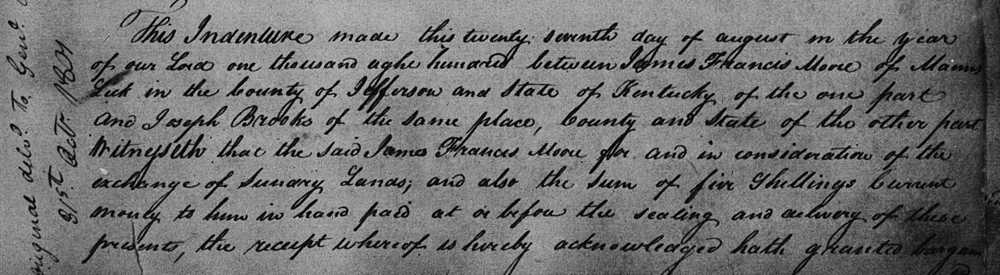 This Indenture made this twenty seventh day of august in the year
of our Lord one thousand aght hundred between James Francis Moore of Manns
Lick in the County of Jefferson and State of Kentucky of the one part
and Joseph Brooks of the same place, County and State of the other part
Witnesseth that the said James Francis Moore for and in consideration of the
exchange of Sundry Lands; and also the sum of five Shillings Current
money to him in hand paid at or before the sealing and delivery of these
presents, the receipt whereof is hereby acknowledged hath granted bargain
original deld. To Genl.
31st Octr. 1804